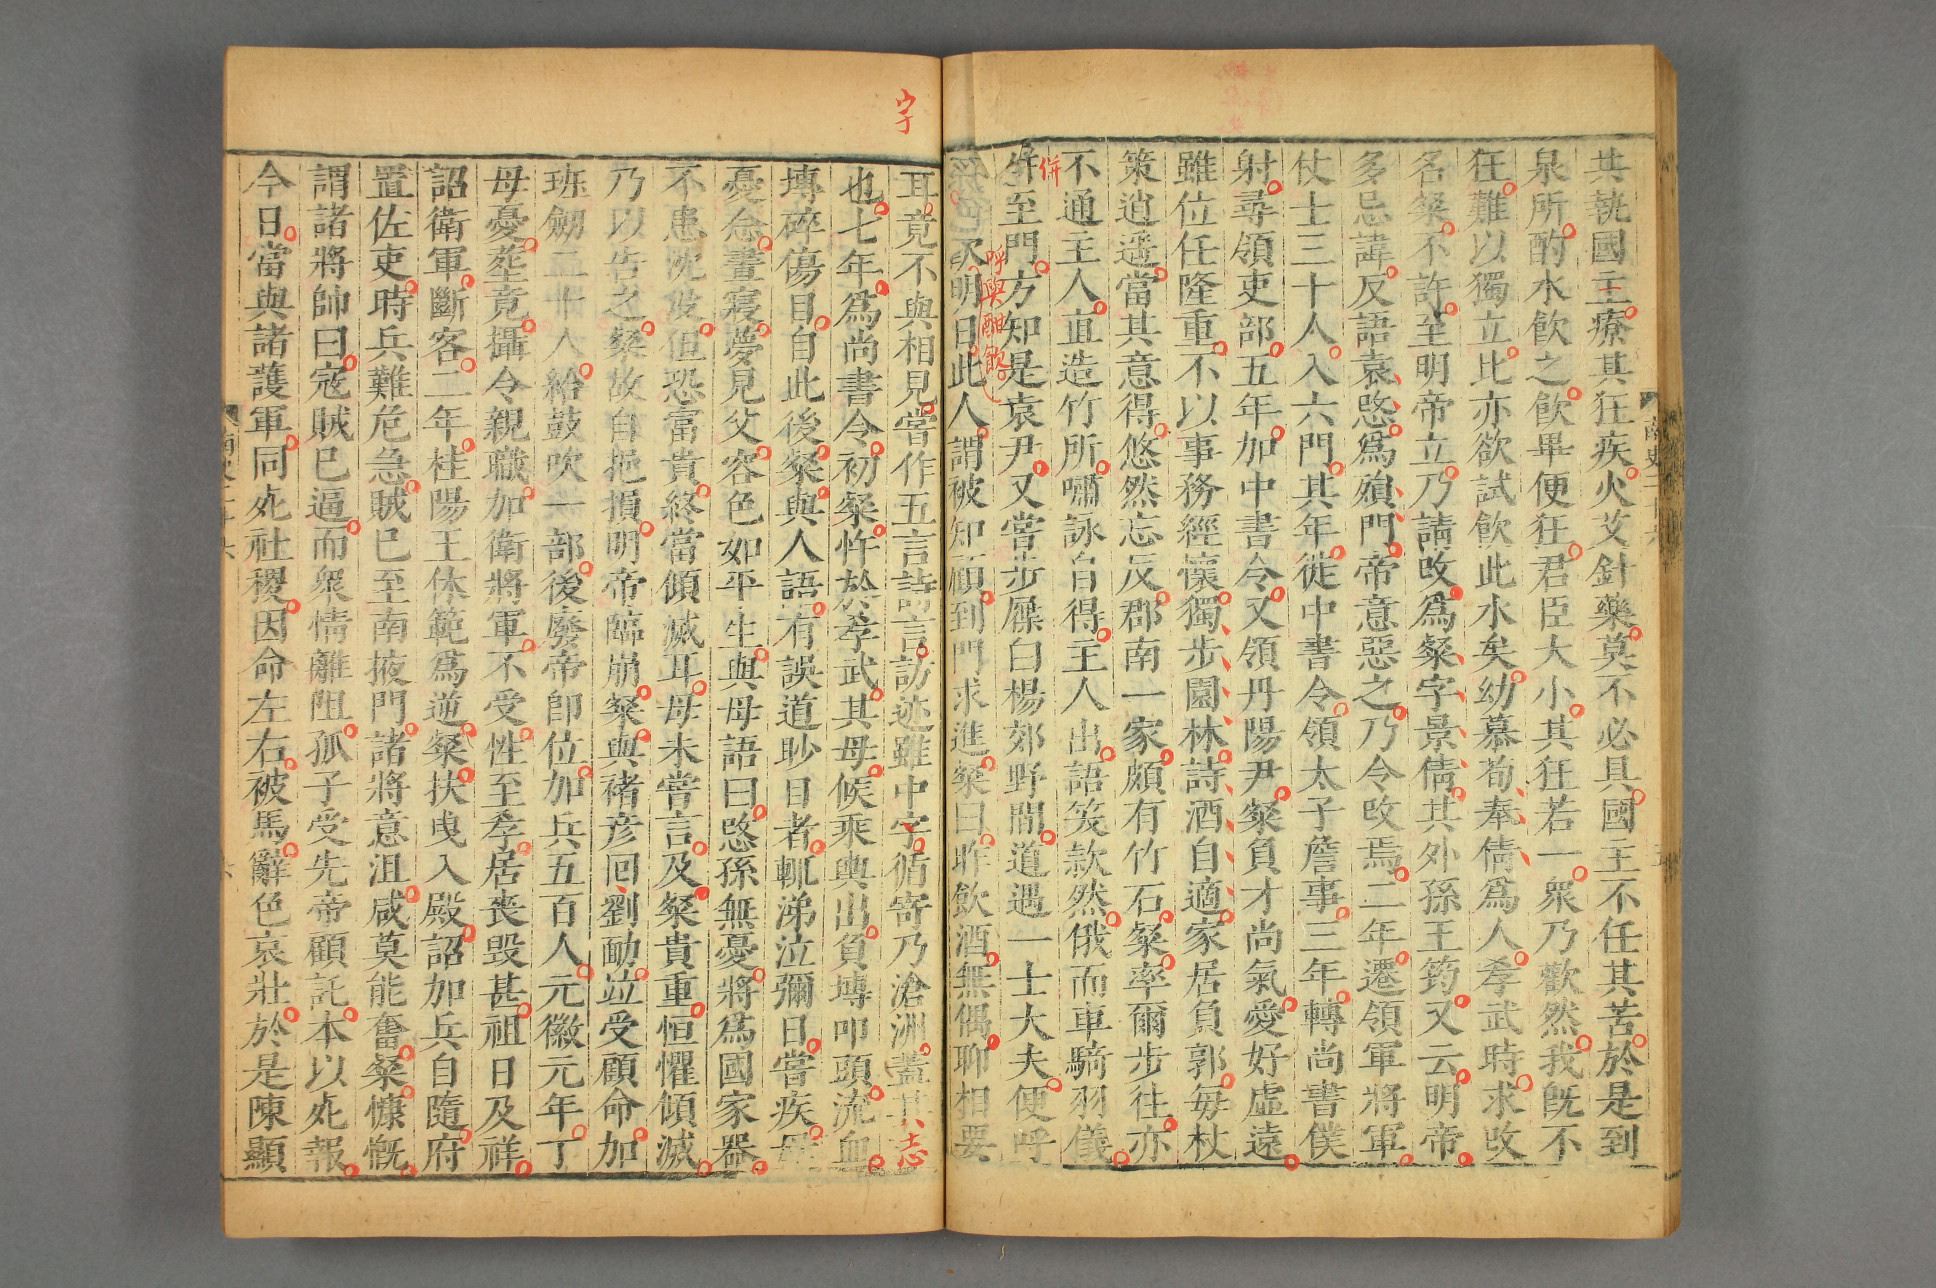 共執國主療其狂疾火艾針藥莫不必具國主不任其苦於是到
泉所酌水飲之飲畢便狂君臣大小其狂若一眾乃歡然我既不
狂難以獨立比亦欲試飲此水矣幼慕荀奉倩爲人孝武時求改
名粲不許至明帝立乃請改爲粲字景倩其外孫王筠又云明帝
多忌諱反語袁愍爲殞門帝意惡之乃令改焉二年遷領軍將軍
仗士三十人入六門其年徙中書令領太子詹事三年轉尚書僕
射尋領吏部五年加中書令又領丹陽尹粲負才尚氣愛好虛遠
雖位任隆重不以事務經懷獨步園林詩酒自適家居負郭每杖
策逍遥當其意得悠然忘反郡南一家頗有竹石粲率爾步往亦
不通主人直造竹所嘯詠自得主人出語笑款然俄而車騎羽儀
併
併至門方知是袁尹又嘗步屧白楊郊野間道遇一士大夫便呼
呼與酣飲
明日此人謂被知顧到門求進粲曰昨飲酒無偶聊相要
字
耳竟不與相見嘗作五言詩言訪迹雖中宇循寄乃滄洲蓋其志
也七年爲尚書令初粲忤於孝武其母候乘輿出負塼叩頭流血
塼碎傷目自此後粲與人語有誤道眇目者輒涕泣彌日嘗疾母
憂念晝寢夢見父容色如平生與母語曰愍孫無憂將爲國家器
不患沈没但恐富貴終當傾滅耳母未嘗言及粲貴重恒懼傾滅
乃以告之粲故自挹損明帝臨崩粲與褚彦回劉勔竝受顧命加
班劒二十人給鼓吹一部後廢帝即位加兵五百人元徽元年丁
母憂塟竟攝令親職加衛將軍不受性至孝居喪毁甚祖日及祥
詔衛軍斷客二年桂陽王休範爲逆粲扶曳入殿詔加兵自隨府
置佐吏時兵難危急賊已至南掖門諸將意沮咸莫能奮粲慷慨
謂諸將帥曰寇賊已逼而衆情離阻孤子受先帝顧託本以死報
今日當與諸護軍同死社稷因命左右被馬辭色哀壯於是陳顯